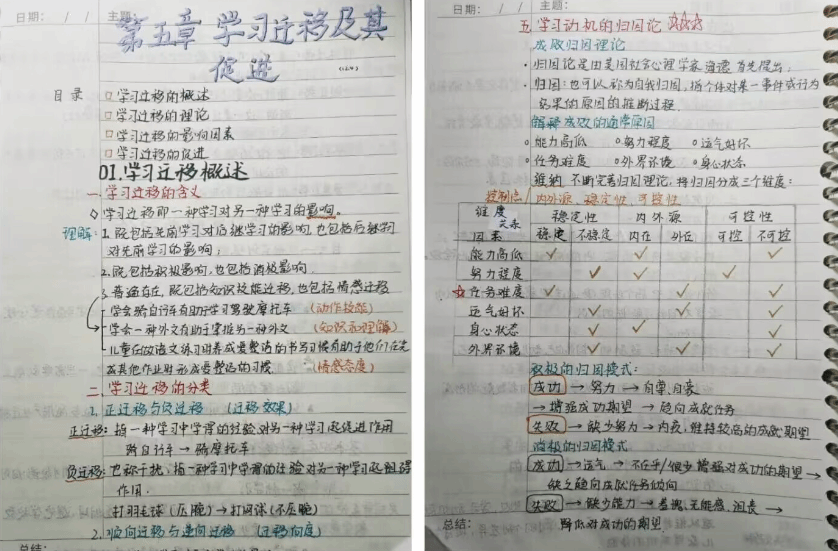 日期： / / 主题：
第五章 学习迁移及其
促进
目录 □学习迁移的概述
□学习迁移的理论
□学习迁移的影响因素
□学习迁移的促进
01.学习迁移概述
一.学习迁移的含义
◇学习迁移即一种学习对另一种学习的影响。
理解：1.既包括先前学习对后继学习的影响,也包括后继学习
对先前学习的影响；
2.既包括积极影响,也包括消极影响
3.普遍存在,既包括知识技能迁移,也包括情感迁移
-学会骑自行车有助于学习驾驶摩托车 (动作技能)
-学会一种外文有助于掌握另一种外文 (知识和理解)
-儿童在做语文练习时养成爱整洁的书写习惯有助于他们在完
成其他作业时形成爱整洁的习惯. (情感态度)
二.学习迁移的分类
1.正迁移与负迁移 (迁移效果)
正迁移：指一种学习中学得的经验对另一种学习起促进作用
骑自行车 → 骑摩托车
负迁移：也称干扰,指一种学习中学得的经验对另一种学习起阻碍
作用.
打羽毛球(压腕)→打网球(不压腕)
2.顺向迁移与逆向迁移 (迁移向度)
总结：
日期： / / 主题：
五.学习动机的归因论 ☆☆☆
成败归因理论
·归因论是由美国社会心理学家海德首先提出；
·归因：也可以称为自我归因,指个体对某一事件或行为
结果的原因的推断过程.
解释成败的通常原因
○能力高低 ○努力程度 ○运气好坏
○任务难度 ○外界环境 ○身心状态
维纳 不断完善归因理论，将归因分成三个维度：
控制点/内外源、稳定性、可控性
维度 关系 因素 稳定性 内外源 可控性
稳定 不稳定 内在 外在 可控 不可控
能力高低 ✓ ✓ ✓
努力程度 ✓ ✓ ✓
☆任务难度 ✓ ✓ ✓
运气好坏 ✓ ✓ ✓
身心状态 ✓ ✓ ✓
外界环境 ✓ ✓ ✓
积极的归因模式：
成功 → 努力 → 自豪、自尊
→增强成功期望 → 趋向成就任务
失败 → 缺少努力 → 内疚,维持较高的成就期望
消极的归因模式
成功 → 运气 → 不在乎/很少增强对成功的期望 →
缺乏趋向成就任务倾向
失败 → 缺少能力 → 羞愧、无能感、沮丧 →
降低对成功的期望
总结：